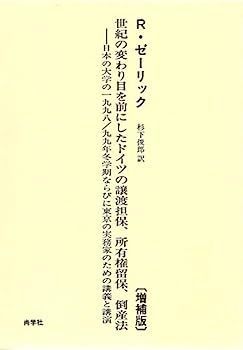 R・ゼーリック
杉下俊郎訳
世紀の変わり目を前にしたドイツの譲渡担保、所有権留保、倒産法
――日本の大学の一九九八／九九年冬学期ならびに東京の実務家のための講義と講演
〔増補版〕
尚学社